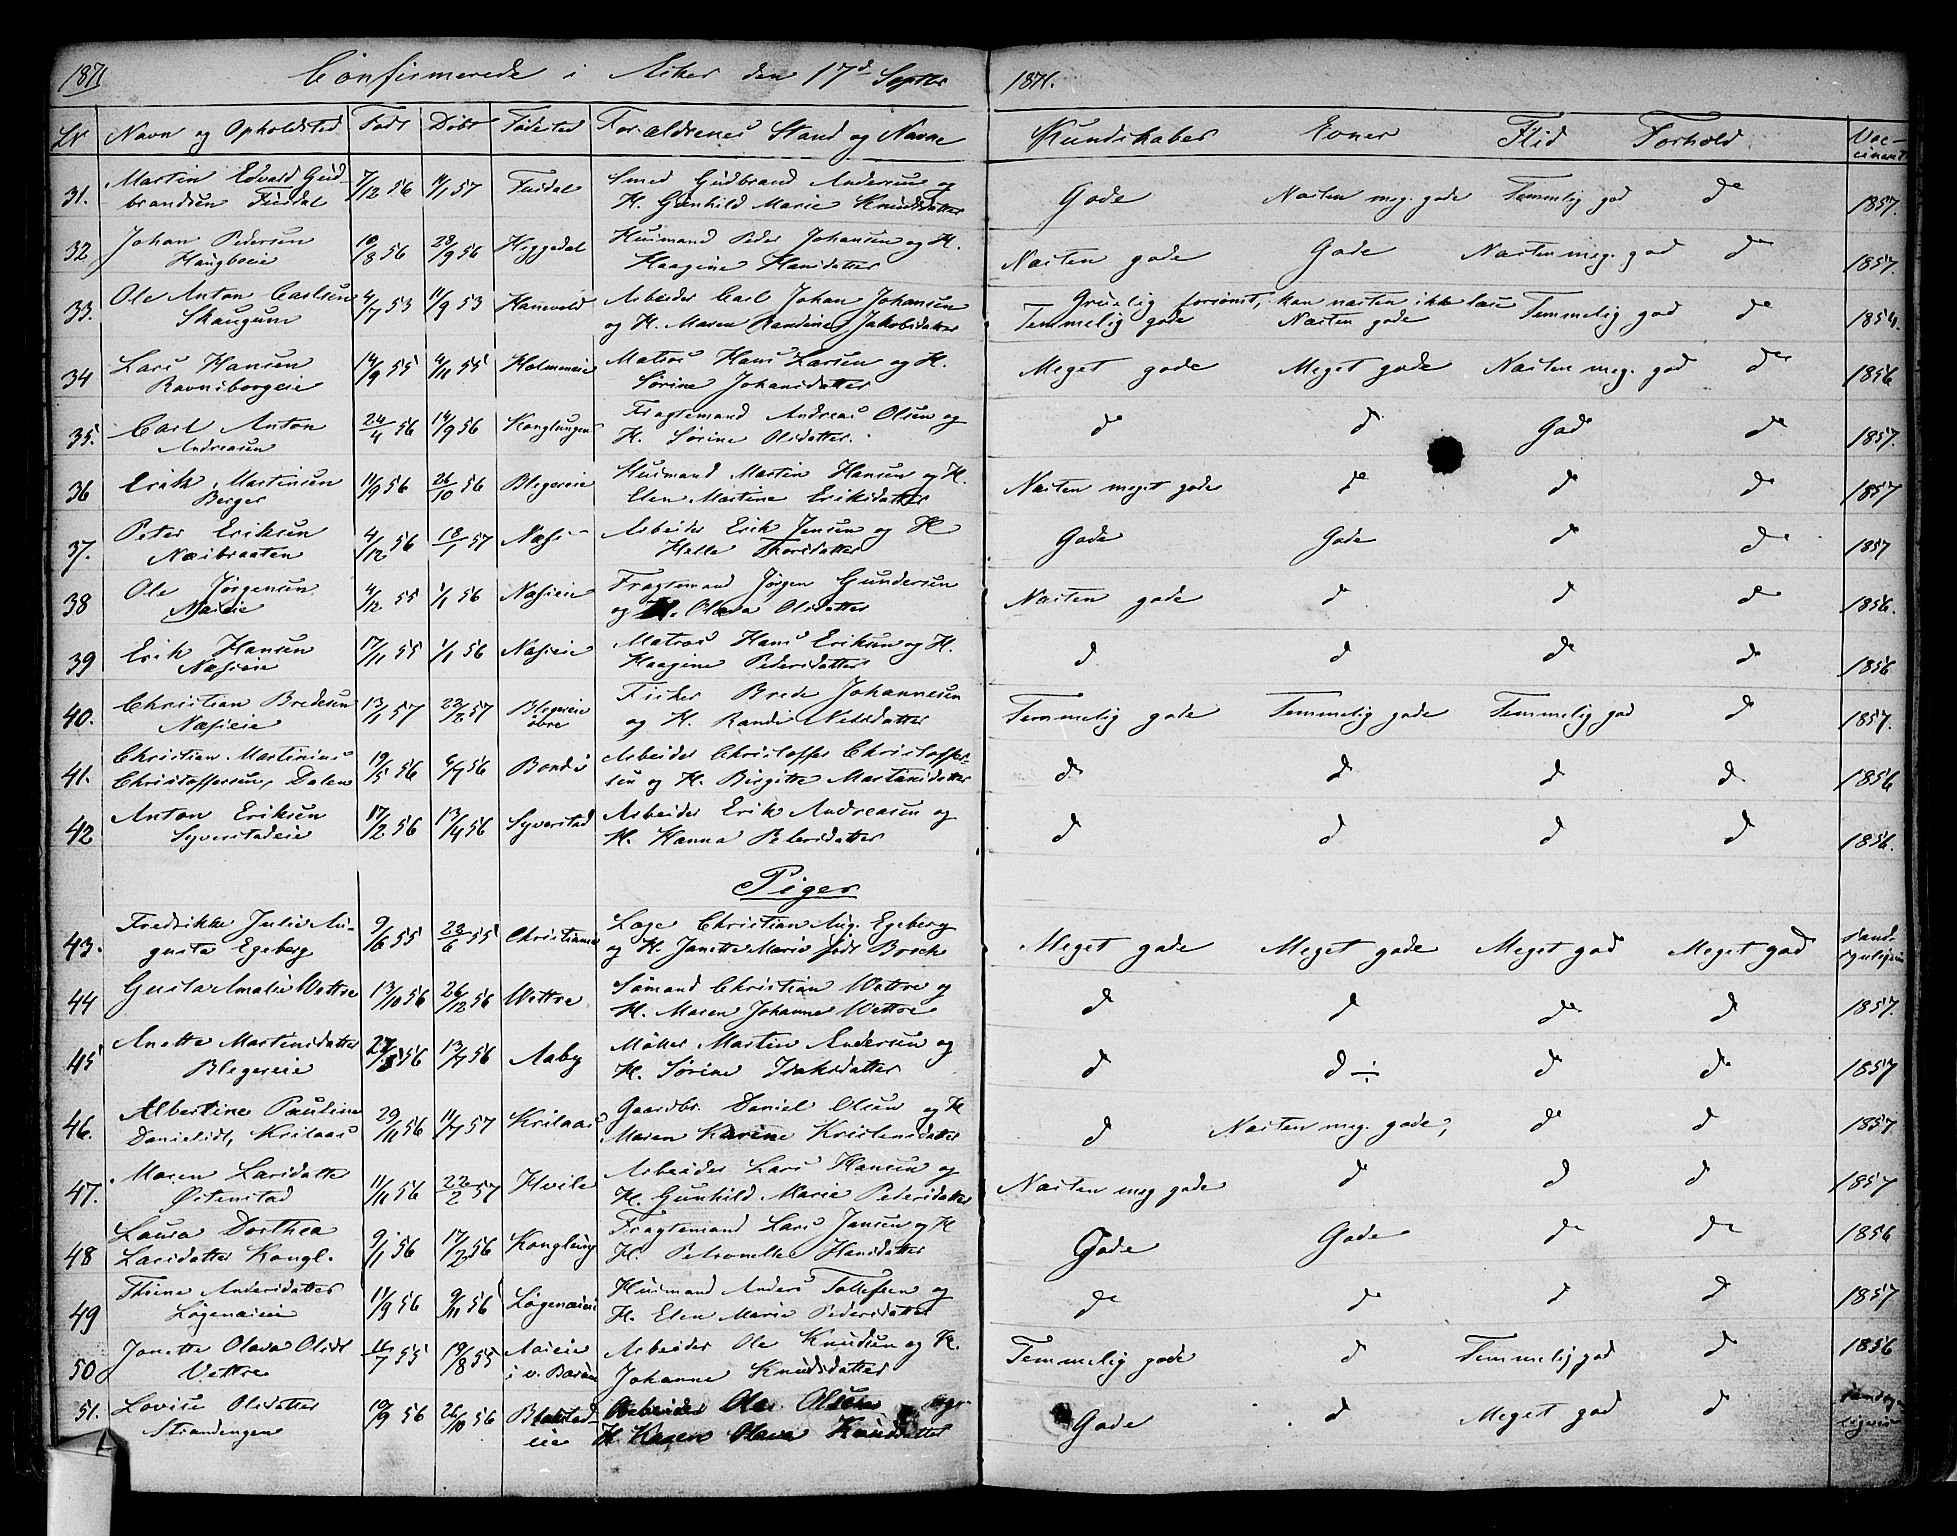 1871 Confirmerede i Asker den 17d Septbr 1871.
Nr Navn og Opholdsted Født Døbt Fødested Forældrenes Stand og Navne Kundskaber Evner Flid Forhold Vac-
cineret
31. Martin Edvard Gud- 7/12 56 11/1 57 Fusdal Smed Gudbrand Andersen og Gode Næsten meg. gode Temmelig god do 1857.
brandsen Fusdal H. Gunhild Marie Knudsdatter
32 Johan Pedersen 10/8 56 28/9 56 Heggedal Husmand Peder Johansen og H. Næsten gode Gode Næsten meg. god do 1857.
Haugboeie Haagine Hansdatter
33. Ole Anton Carlsen 4/7 53 11/9 53 Hanevold Arbeider Carl Johan Johansen Gruelig forsømt, kan næsten ikke læse
Skaugum og H. Maren Randine Jakobsdatter Temmelig gode Næsten gode Temmelig god do 1854.
34 Lars Hansen 14/9 55 4/11 55 Holmeneie Matros Hans Larsen og H. Meget gode Meget gode Næsten meg. god do 1856
Ravnsborgeie Sørine Johansdatter
35. Carl Anton 24/4 56 14/9 56 Konglungen Fragtemand Andreas Olsen og do do God do 1857.
Andreasen H. Sørine Olsdatter.
36 Erik Martinsen 11/9 56 26/10 56 Blegereie Husmand Martin Hansen og H. Næsten meget gode do do do 1857
Berger Elen Martine Eriksdatter
37. Peter Eriksen 4/12 56 18/1 57 Næs Arbeider Erik Jensen og H Gode Gode do do 1857
Næsbraaten Helle Thorsdatter
38 Ole Jørgensen 4/12 55 1/1 56 Næseie Fragtemand Jørgen Gundersen Næsten gode do do do 1856.
Næseie og H. Olava Olsdatter
39 Erik Hansen 17/11 55 1/1 56 Næseie Matros Hans Eriksen og H. do do do do 1856
Næseie Haagine Pedersdatter
40. Christian Bredesen 13/1 57 22/2 57 Blegereie Fisker Brede Johannesen Temmelig gode Temmelig gode Temmelig god do 1857.
Næseie øvre og H. Randi Nelsdatter
41. Christian Martinius 19/5 56 6/7 56 Bondi Arbeider Christoffer Christoffer- do do do do 1856
Christoffersen, Dalen sen og H. Birgitte Martinsdatter
42 Anton Eriksen 17/2 56 13/4 56 Syverstad Arbeider Erik Andreasen og do do do do 1856.
Syverstadeie H. Hanna Pedersdatter
Piger
43. Fredrikke Julie Au- 9/6 55 23/6 55 Christiania Læge Christian Aug. Egeberg Meget gode Meget gode Meget god Meget god sand-
gusta Egeberg og H. Janette Marie født Bosch synligviis
44 Gusta Amalie Wettre 13/10 56 26/12 56 Wettre Sømand Christian Wettre og do do do do 1857.
H. Maren Johanne Wettre
45 Anette Martinsdatter 27/5 56 13/7 56 Aaby Møller Martin Andersen og do do ÷ do do 1857
Blegereie H. Sørine Isaksdatter
46. Albertine Pauline 29/11 56 11/7 57 Krilaas Gaardbr. Daniel Olsen og H do Næsten meg. gode, do do 1857
Danielsdt, Krilaas Maren Karine Kristensdatter
47. Maren Larsdatter 11/11 56 22/2 57 Hvile Arbeider Lars Hansen og Næsten meg gode do do do 1857
Østenstad H. Gunhild Marie Pedersdatter
48 Laura Dorthea 9/1 56 17/2 56 Konglung Fragtemand Lars Jansen og H Gode Gode do do 1856
Larsdatter Kongl. H. Petronelle Hansdatter
49 Thrine Andersdatter 11/9 56 9/11 56 Løgenæseie Husmand Anders Tollefsen og do do do do 1857
Løgenæseie H. Elen Marie Pedersdatter
50 Janette Olava Olsdt 11/7 55 19/8 55 Næseie Arbeider Ole Knudsen og H. Temmelig gode do Temmelig god do 1856
Vettre i v. Bærum Johanne Knudsdatter
51. Lovise Olsdatter 10/9 56 26/10 56 Blakstad- Arbeider Ole Olsen og Gode do Meget god do sandsyn-
Strandengen eie H. Karen Olava Knudsdatter ligviis